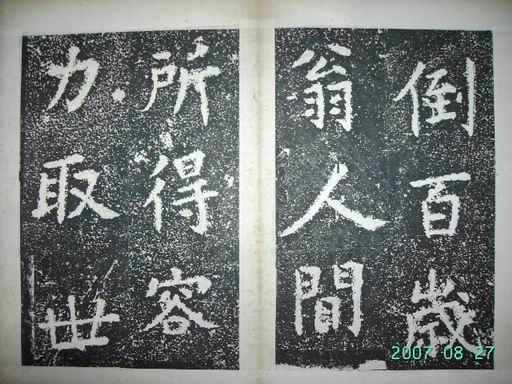 倒百歲
翁人間
所得容
力取丗
2007 08 27